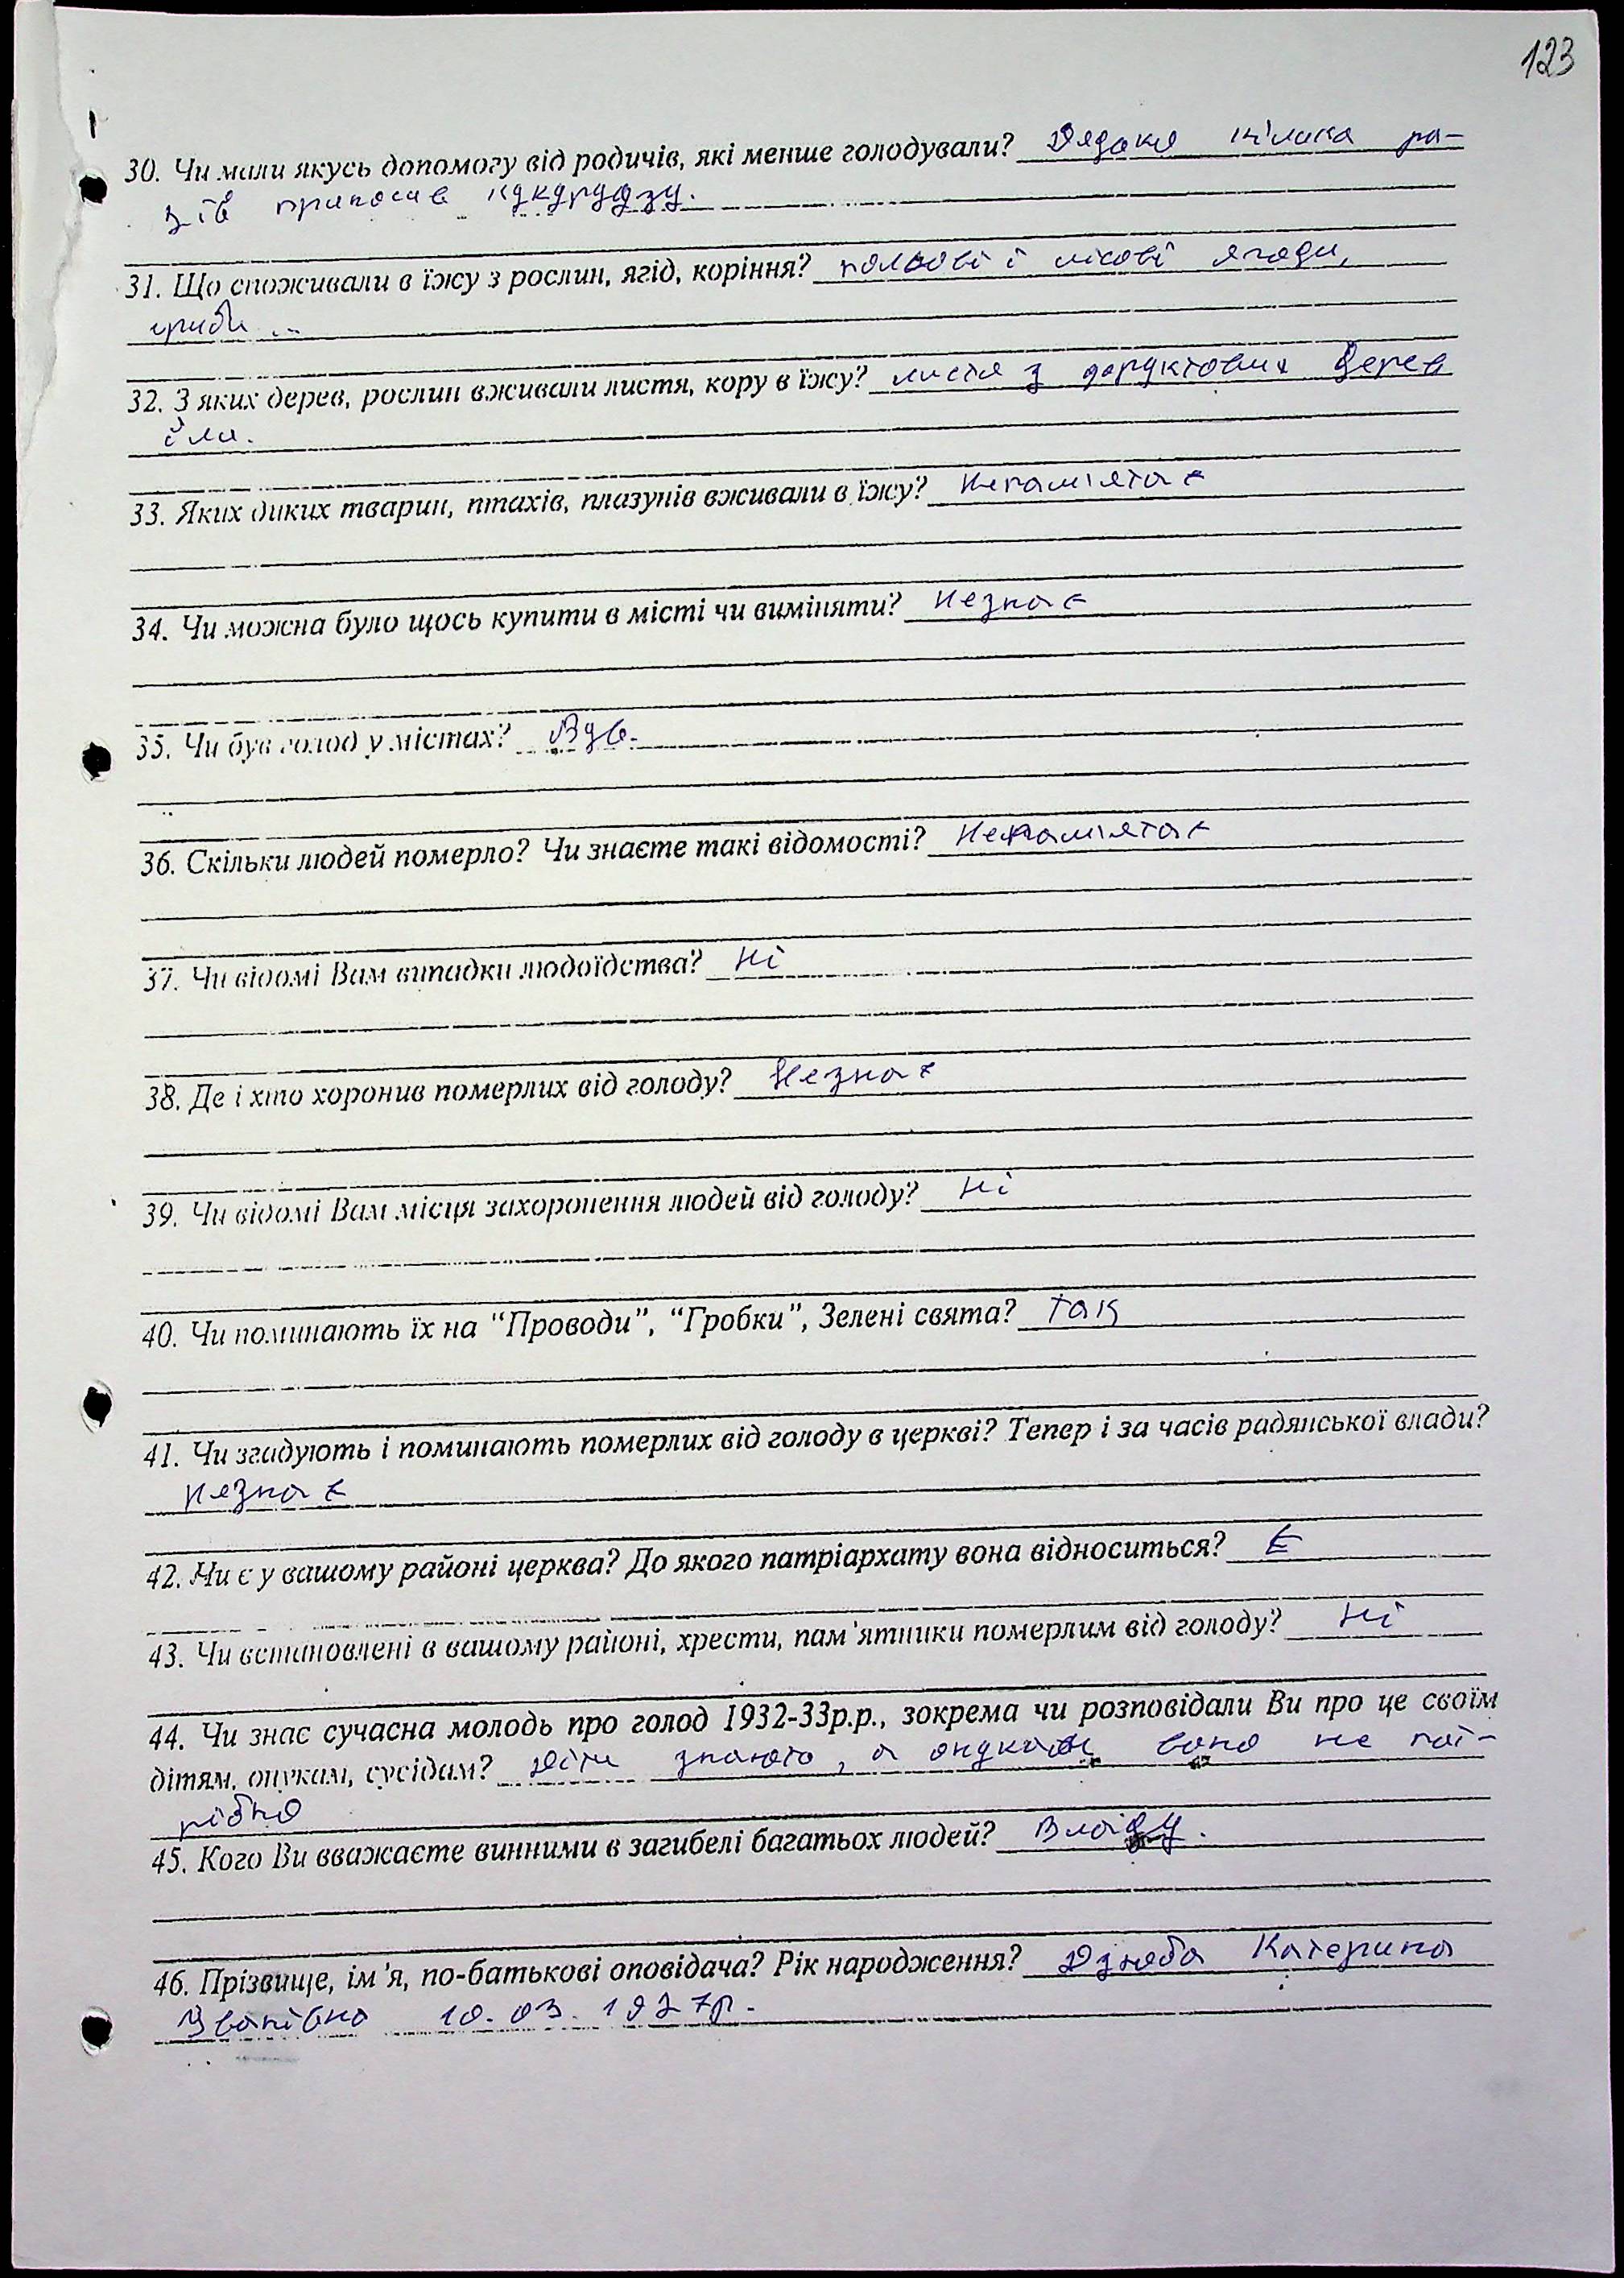 123
30. Чи мали якусь допомогу від родичів, які менше голодували? Дядько кілька ра-
зів приносив кукурудзу.
31. Що споживали в їжу з рослин, ягід, коріння? польові і лісові ягоди,
гриби ...
32. З яких дерев, рослин вживали листя, кору в їжу? листя з фруктових дерев
їли.
33. Яких диких тварин, птахів, плазунів вживали в їжу? Непамʼятає
34. Чи можна було щось купити в місті чи виміняти? незнає
35. Чи був голод у містах? Був.
36. Скільки людей померло? Чи знаєте такі відомості? Непамʼятає
37. Чи відомі Вам випадки людоїдства? Ні
38. Де і хто хоронив померлих від голоду? Незнає
39. Чи відомі Вам місця захоронення людей від голоду? Ні
40. Чи поминають їх на “Проводи”, “Гробки”, Зелені свята? Так
41. Чи згадують і поминають померлих від голоду в церкві? Тепер і за часів радянської влади?
незнає
42. Чи є у вашому районі церква? До якого патріархату вона відноситься? Є
43. Чи встановлені в вашому районі, хрести, пам'ятники померлим від голоду? Ні
44. Чи знає сучасна молодь про голод 1932-33р.р., зокрема чи розповідали Ви про це своїм
дітям, онукам, сусідам? Діти знають, а онукам воно не пот-
рібно
45. Кого Ви вважаєте винними в загибелі багатьох людей? Владу.
46. Прізвище, ім'я, по-батькові оповідача? Рік народження? Дзюба Катерина
Іванівна 10.03.1927р.